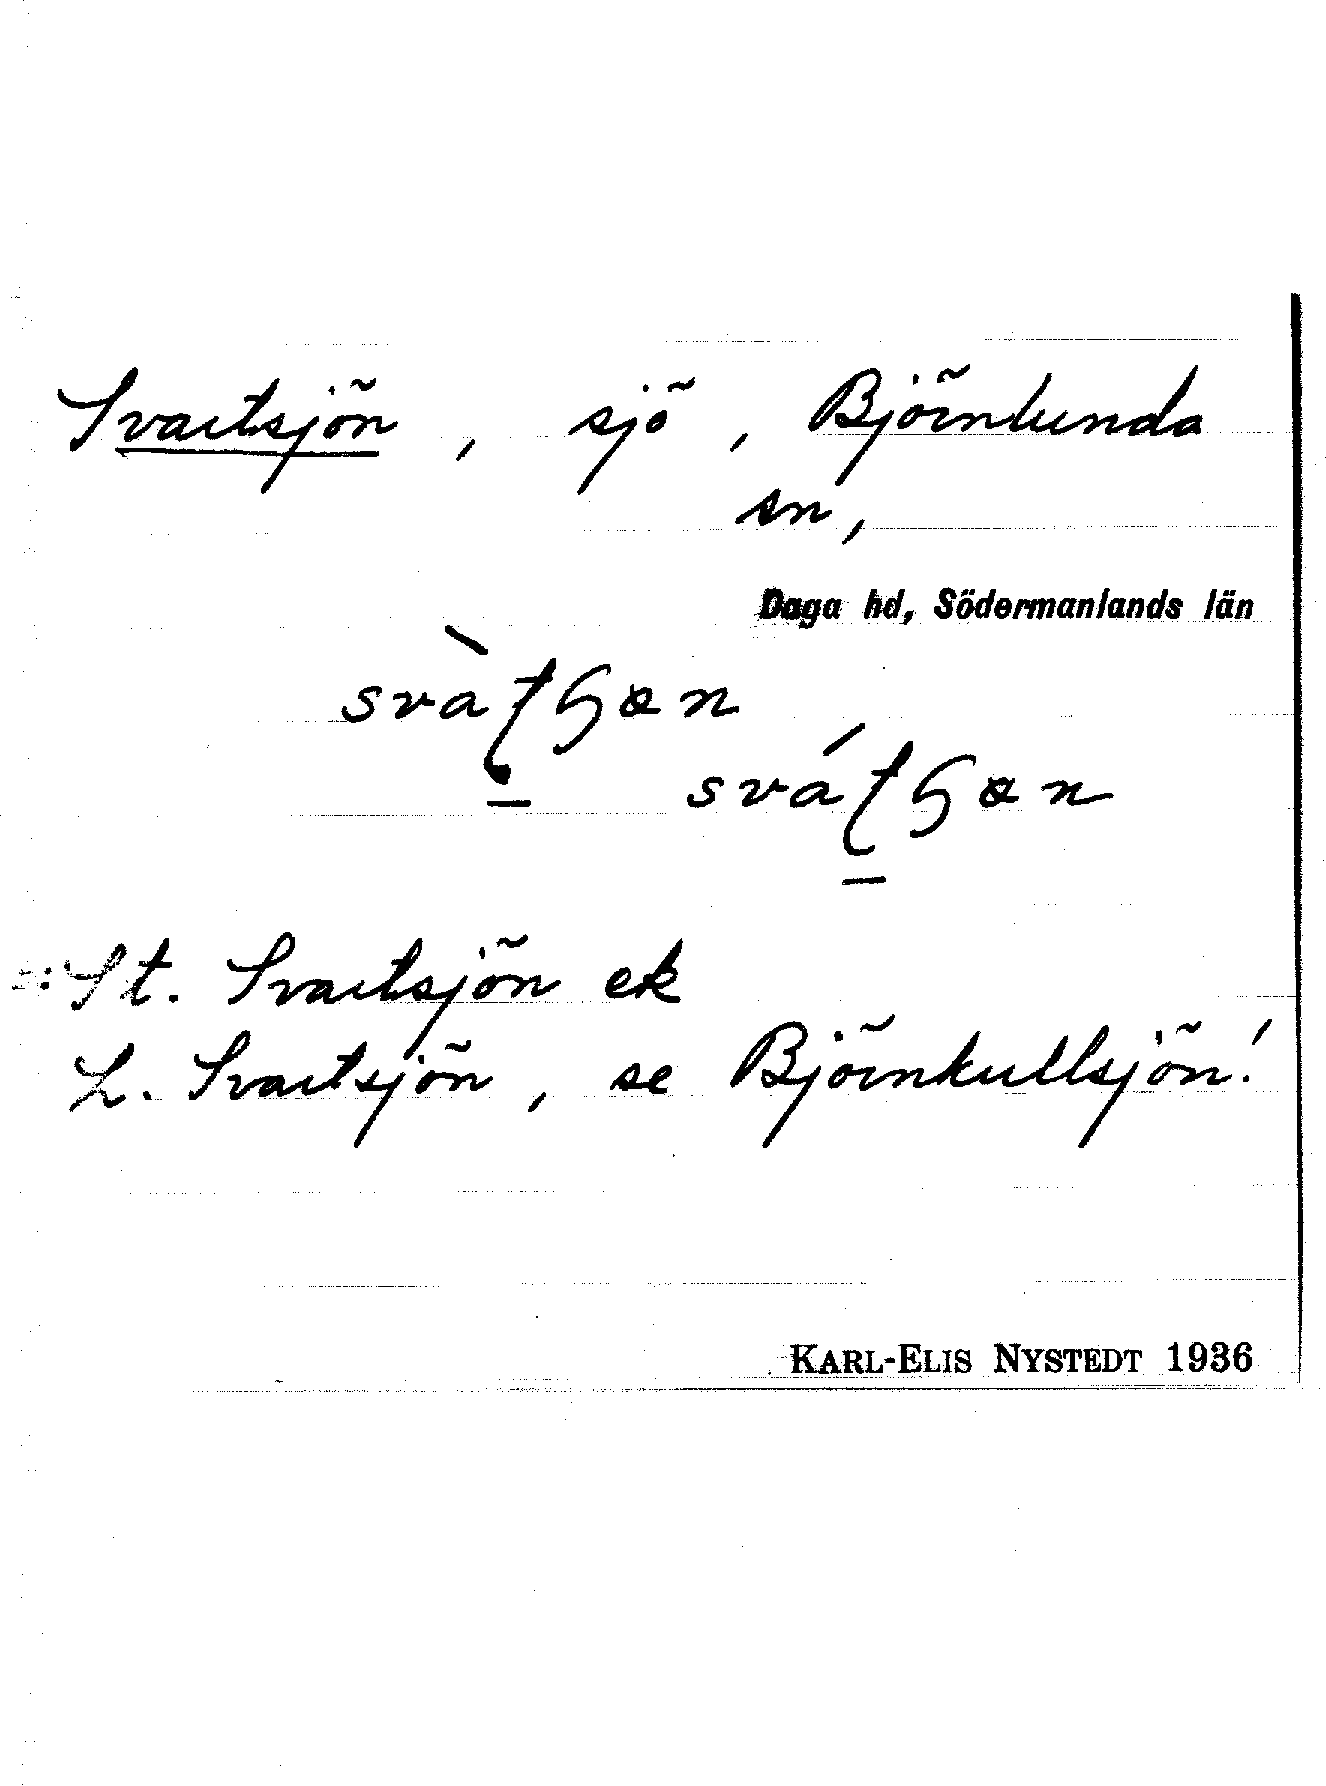 Svartsjön, sjö, Björnlunda
sn,
Daga hd, Södermanlands län
St. Svartsjön ek
L. Svartsjön, se Björnkullsjön!
KARL-ELIS NYSTEDT 1936